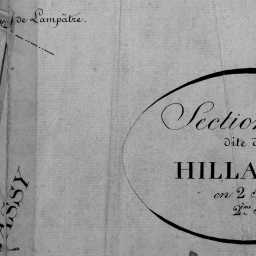 de Lampâtre.
Section
dite d
HILLA
en 2
2me
ASSY